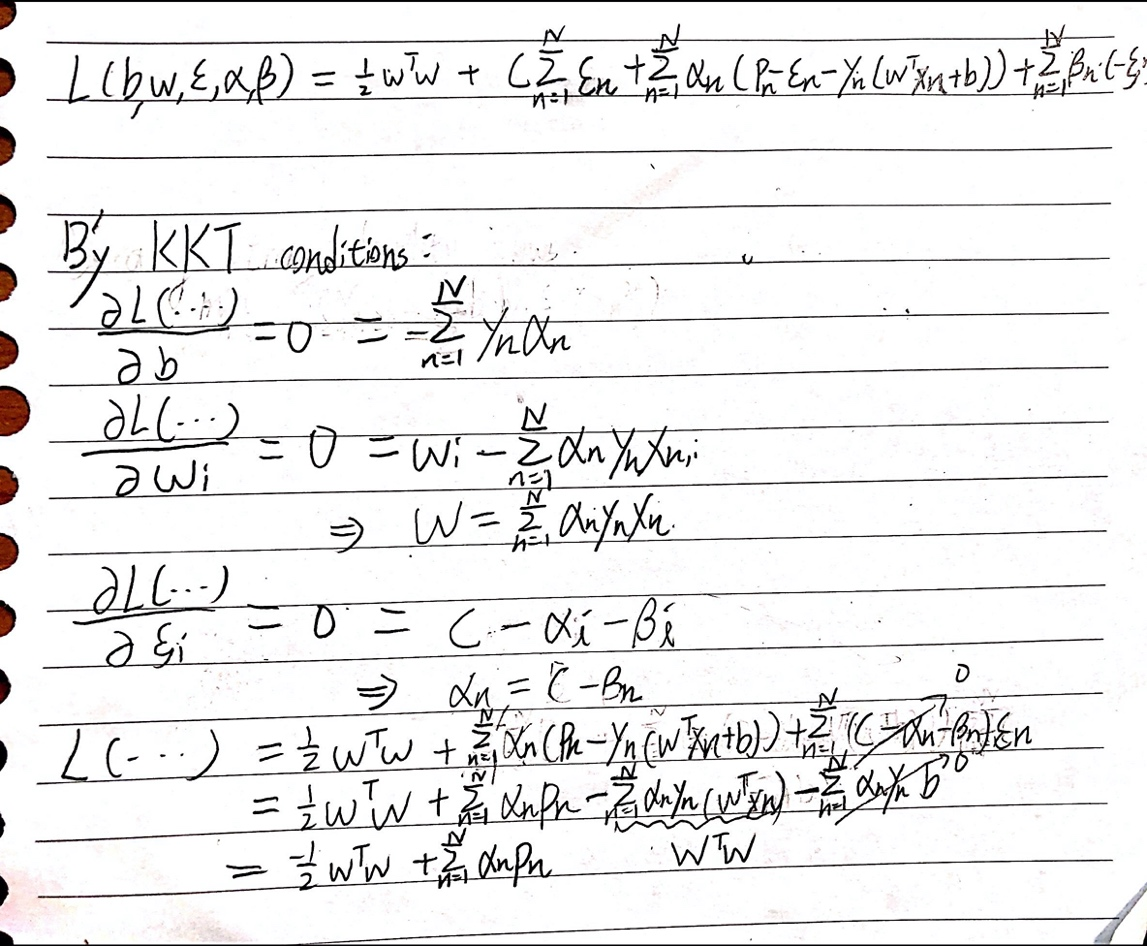 L(b,w,ξ,α,β) = ½ wᵀw + C Σ_{n=1}^{N} ξn + Σ_{n=1}^{N} αn (ρn - ξn - yn (wᵀxn+b)) + Σ_{n=1}^{N} βn·(-ξ
By KKT conditions:
∂L(...)/∂b = 0 = -Σ_{n=1}^{N} ynαn
∂L(...)/∂wi = 0 = wi - Σ_{n=1}^{N} αnynxn,i
⇒ w = Σ_{n=1}^{N} αnynxn.
∂L(...)/∂ξi = 0 = C - αi - βi
⇒ αn = C - βn
L(...) = ½ wᵀw + Σ_{n=1}^{N} αn(ρn - yn(wᵀxn+b)) + Σ_{n=1}^{N} (C - αn - βn)ξn 0
= ½ wᵀw + Σ_{n=1}^{N} αnρn - Σ_{n=1}^{N} αnyn(wᵀxn) - Σ_{n=1}^{N} αnyn b 0
= -½ wᵀw + Σ_{n=1}^{N} αnρn wᵀw